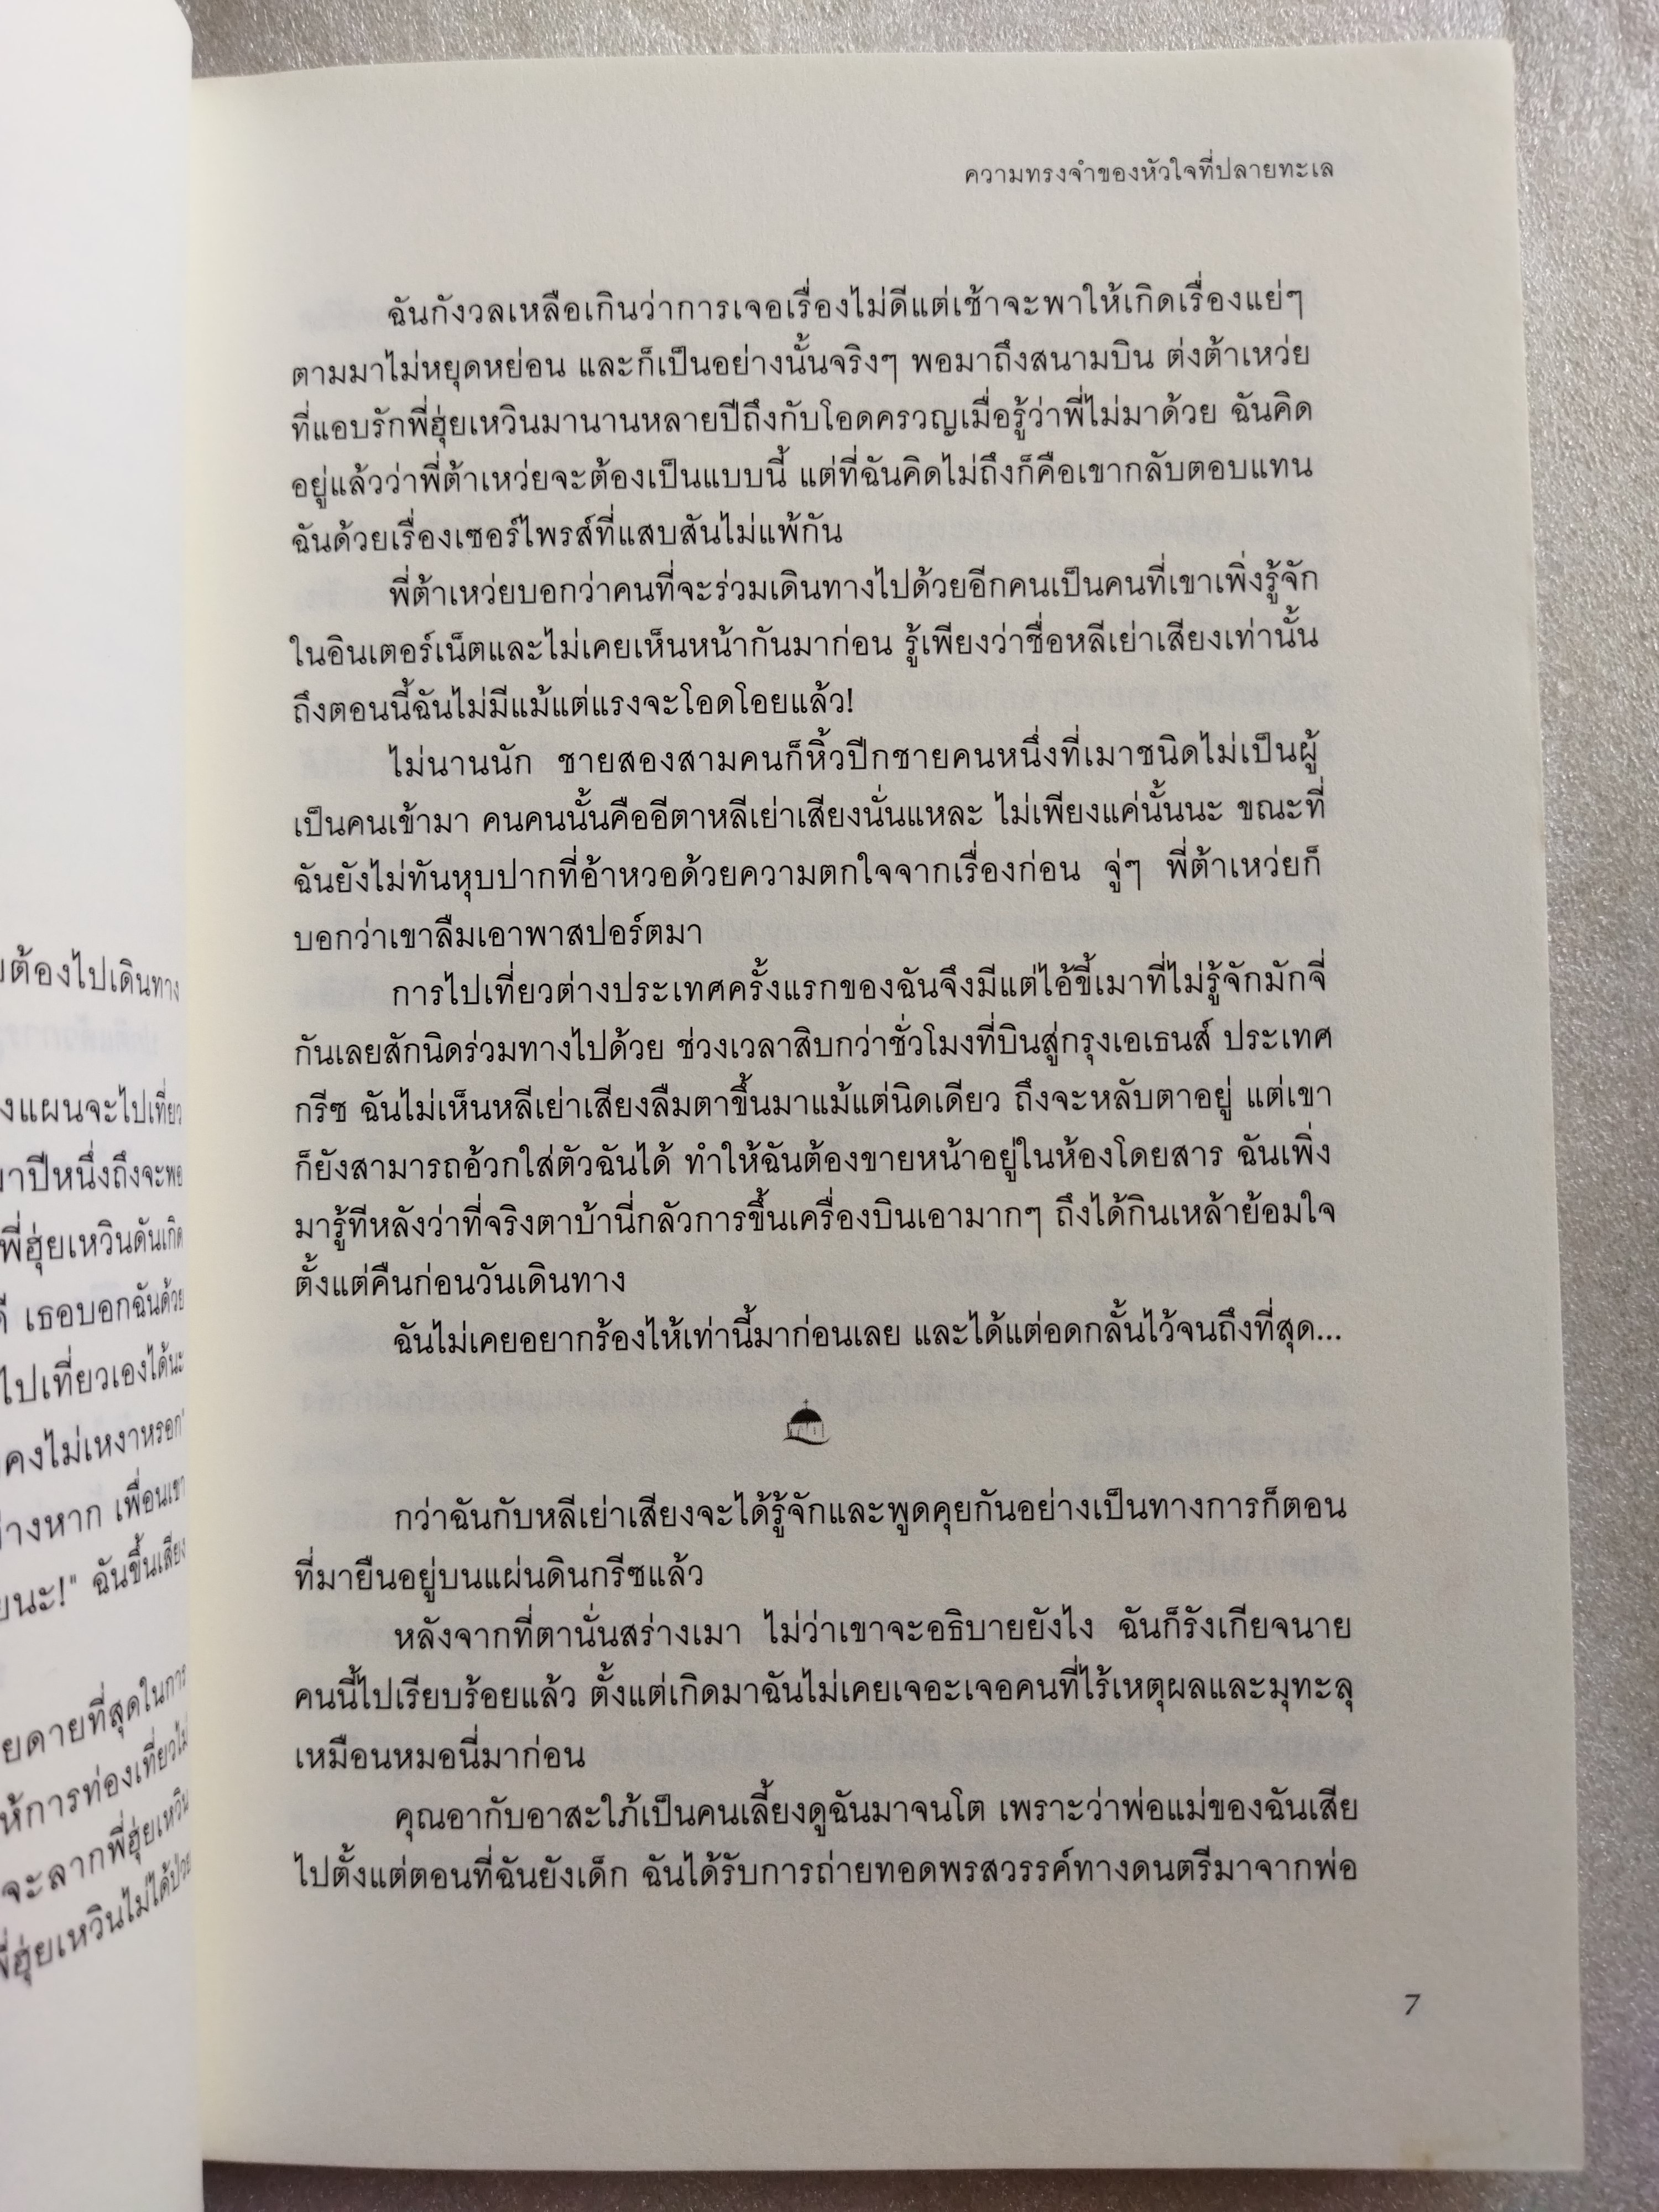 ความทรงจำของหัวใจที่ปลายทะเล
ฉันกังวลเหลือเกินว่าการเจอเรื่องไม่ดีแต่เช้าจะพาให้เกิดเรื่องแย่ๆ
ตามมาไม่หยุดหย่อน และก็เป็นอย่างนั้นจริงๆ พอมาถึงสนามบิน ต่งต้าเหว่ย
ที่แอบรักพี่ฮุ่ยเหวินมานานหลายปีถึงกับโอดครวญเมื่อรู้ว่าพี่ไม่มาด้วย ฉันคิด
อยู่แล้วว่าพี่ต้าเหว่ยจะต้องเป็นแบบนี้ แต่ที่ฉันคิดไม่ถึงก็คือเขากลับตอบแทน
ฉันด้วยเรื่องเซอร์ไพรส์ที่แสบสันไม่แพ้กัน
พี่ต้าเหว่ยบอกว่าคนที่จะร่วมเดินทางไปด้วยอีกคนเป็นคนที่เขาเพิ่งรู้จัก
ในอินเตอร์เน็ตและไม่เคยเห็นหน้ากันมาก่อน รู้เพียงว่าชื่อหลีเย่าเสียงเท่านั้น
ถึงตอนนี้ฉันไม่มีแม้แต่แรงจะโอดโอยแล้ว!
ไม่นานนัก ชายสองสามคนก็หิ้วปีกชายคนหนึ่งที่เมาชนิดไม่เป็นผู้
เป็นคนเข้ามา คนคนนั้นคืออีตาหลีเย่าเสียงนั่นแหละ ไม่เพียงแค่นั้นนะ ขณะที่
ฉันยังไม่ทันหุบปากที่อ้าหวอด้วยความตกใจจากเรื่องก่อน จู่ๆ พี่ต้าเหว่ยก็
บอกว่าเขาลืมเอาพาสปอร์ตมา
การไปเที่ยวต่างประเทศครั้งแรกของฉันจึงมีแต่ไอ้ขี้เมาที่ไม่รู้จักมักจี่
กันเลยสักนิดร่วมทางไปด้วย ช่วงเวลาสิบกว่าชั่วโมงที่บินสู่กรุงเอเธนส์ ประเทศ
กรีซ ฉันไม่เห็นหลีเย่าเสียงลืมตาขึ้นมาแม้แต่นิดเดียว ถึงจะหลับตาอยู่ แต่เขา
ก็ยังสามารถอ้วกใส่ตัวฉันได้ ทำให้ฉันต้องขายหน้าอยู่ในห้องโดยสาร ฉันเพิ่ง
มารู้ทีหลังว่าที่จริงตาบ้านี่กลัวการขึ้นเครื่องบินเอามากๆ ถึงได้กินเหล้าย้อมใจ
ตั้งแต่คืนก่อนวันเดินทาง
ฉันไม่เคยอยากร้องไห้เท่านี้มาก่อนเลย และได้แต่อดกลั้นไว้จนถึงที่สุด...
กว่าฉันกับหลีเย่าเสียงจะได้รู้จักและพูดคุยกันอย่างเป็นทางการก็ตอน
ที่มายืนอยู่บนแผ่นดินกรีซแล้ว
หลังจากที่ตานั่นสร่างเมา ไม่ว่าเขาจะอธิบายยังไง ฉันก็รังเกียจนาย
คนนี้ไปเรียบร้อยแล้ว ตั้งแต่เกิดมาฉันไม่เคยเจอะเจอคนที่ไร้เหตุผลและมุทะลุ
เหมือนหมอนี่มาก่อน
คุณอากับอาสะใภ้เป็นคนเลี้ยงดูฉันมาจนโต เพราะว่าพ่อแม่ของฉันเสีย
ไปตั้งแต่ตอนที่ฉันยังเด็ก ฉันได้รับการถ่ายทอดพรสวรรค์ทางดนตรีมาจากพ่อ
7
ต้องไปเดินทาง
งแผนจะไปเที่ยว
าปีหนึ่งถึงจะพอ
พี่ฮุ่ยเหวินดันเกิด
เธอบอกฉันด้วย
ไปเที่ยวเองได้นะ
คงไม่เหงาหรอก"
่างหาก เพื่อนเขา
ยนะ!" ฉันขึ้นเสียง
ยดายที่สุดในการ
ห้การท่องเที่ยวไม่
จะลากพี่ฮุ่ยเหวิน
พี่ฮุ่ยเหวินไม่ได้ป่วย